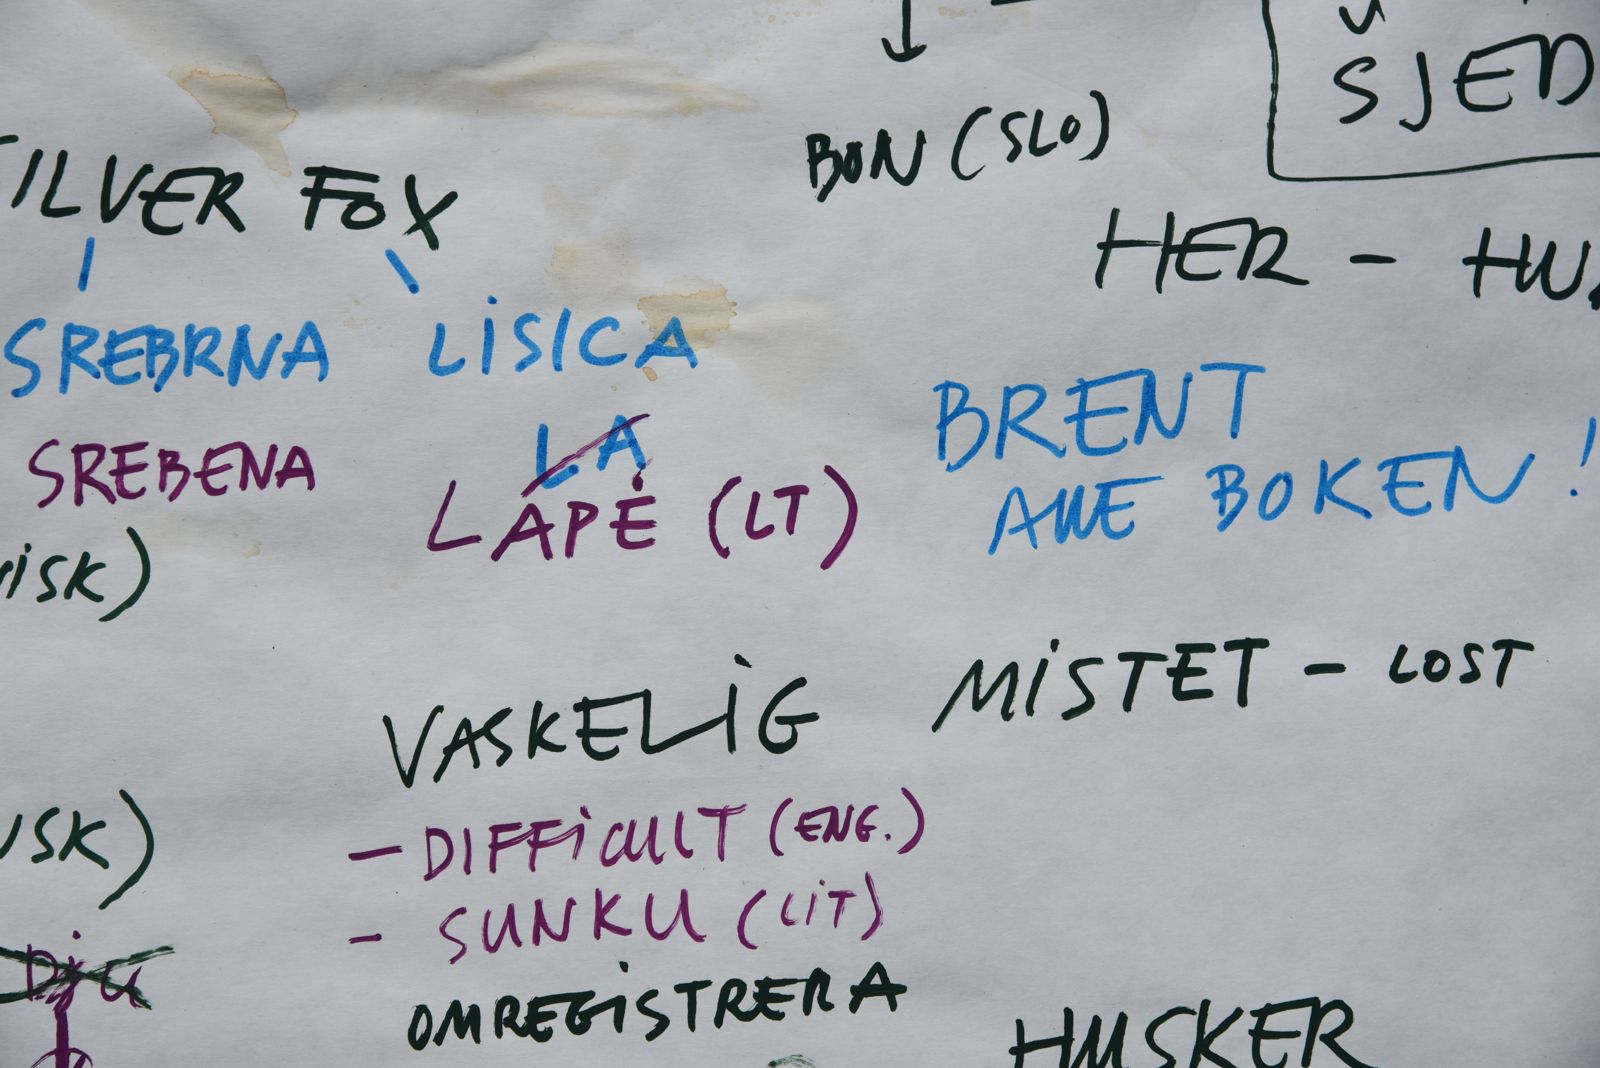 BON (SLO)
SJED
SILVER FOX
HER - HU
SREBRNA LISICA
BRENT
LA
SREBENA
LAPĖ (LT)
AME BOKEN!
ISK)
MISTET - LOST
VASKELIG
- DIFFICULT (ENG.)
USK)
- SUNKU (LIT)
OMREGISTRERA
HUSKER